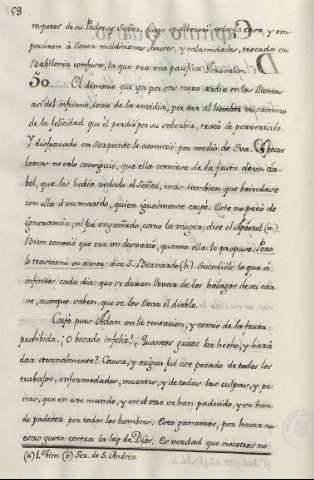 58
respetos de su Padre, y Señor. Cayo en
pezaron a llover maldiciones, voces, y calamidades, trocada en
Babilonia confusa, la que era una pacifica Jerusalen.
50 El demonio que ya por otro tanto ardia en las llamas
asi del infierno, como de la envidia, por ver al hombre en camino
de la felicidad que él perdió por su soberbia, trató de pervertirle.
Y disfrazado en serpiente le acometió por medio de Eva. A pocos
lances no solo consiguió, que ella comiese de la fruta de un ár-
bol, que les habia vedado el Señor, mas tambien que brindase
con ella á su marido, quien igualmente cayó. Este no pecó de
ignorancia, ni fué engañado, como la muger, dice el Apóstol (a).
Bien conoció que era un desvarío, quanto ella le propuso. Pero
le trastornó su amor, dice S. Bernardo (b). Sucedióle lo que á
infinitos cada dia: que se dexan llevar de los halagos de su car-
ne, aunque saben, que se los lleva el diablo.
Cayó pues Adan en la tentacion, y comió de la fruta
prohibida. ¡O bocado infeliz! ¿Quantos gustos ha hecho, y hará
dar eternalmente? Causa, y origen fué ese pecado de todos los
trabajos, enfermedades, muertes, y de todas las culpas, y pe-
nas, que en este mundo, y en el otro se han padecido, y se han
de padecer por todos los hombres. Esto ganamos, por hacer nu-
estro gusto contra la ley de Dios. Es verdad que nosotros no
(a) 1.ª Tim. (b) Ser. de S. Andrea.